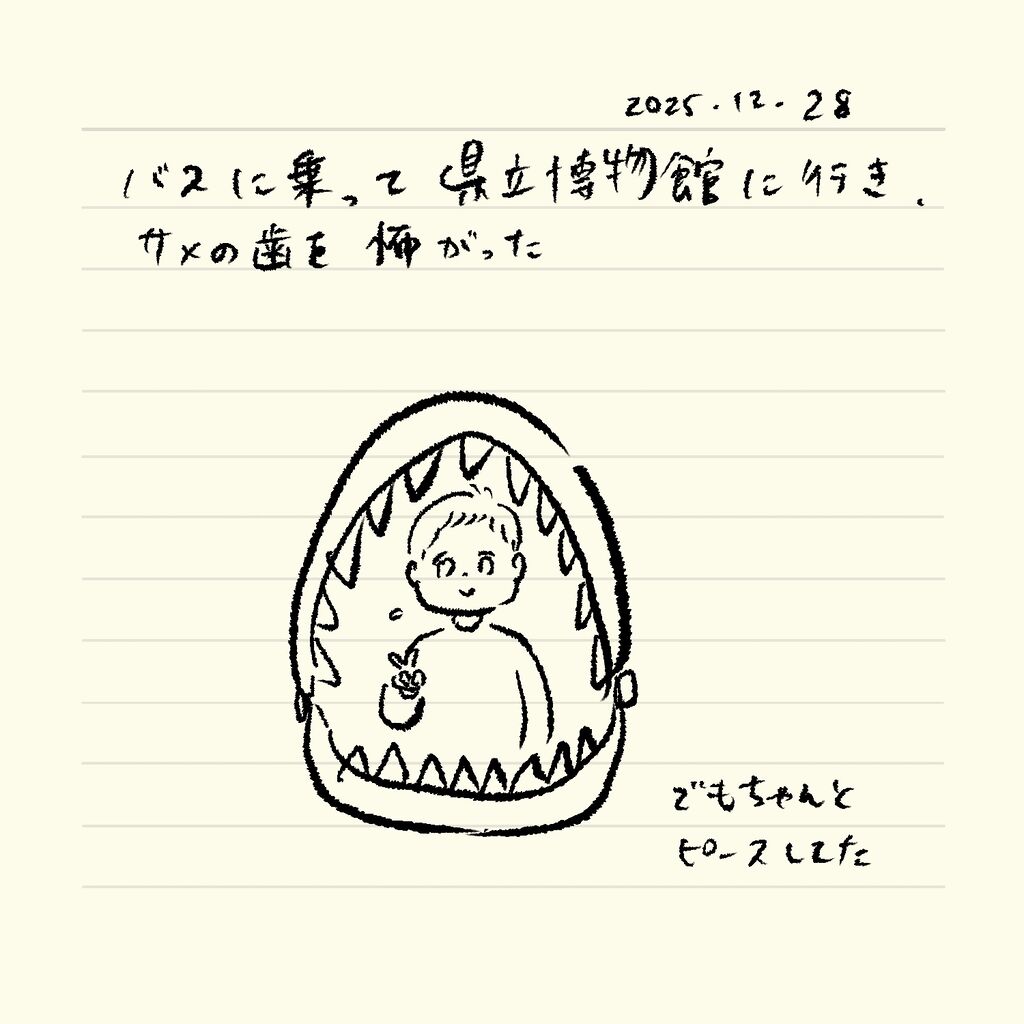 2025.12.28
バスに乗って県立博物館に行き.
サメの歯を怖がった
でもちゃんと
ピースしてた